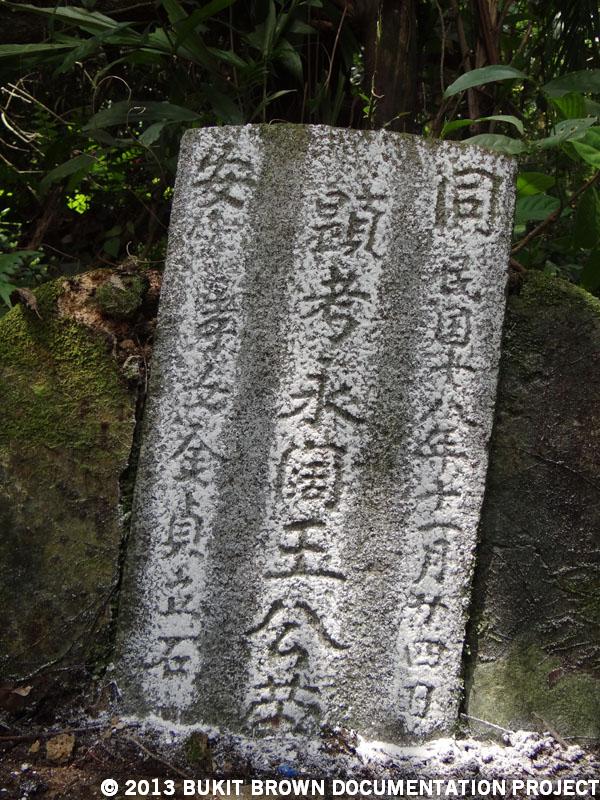 同 民国十八年十一月廿四日
顕考永王公
安 孝女金貞立石
© 2013 BUKIT BROWN DOCUMENTATION PROJECT